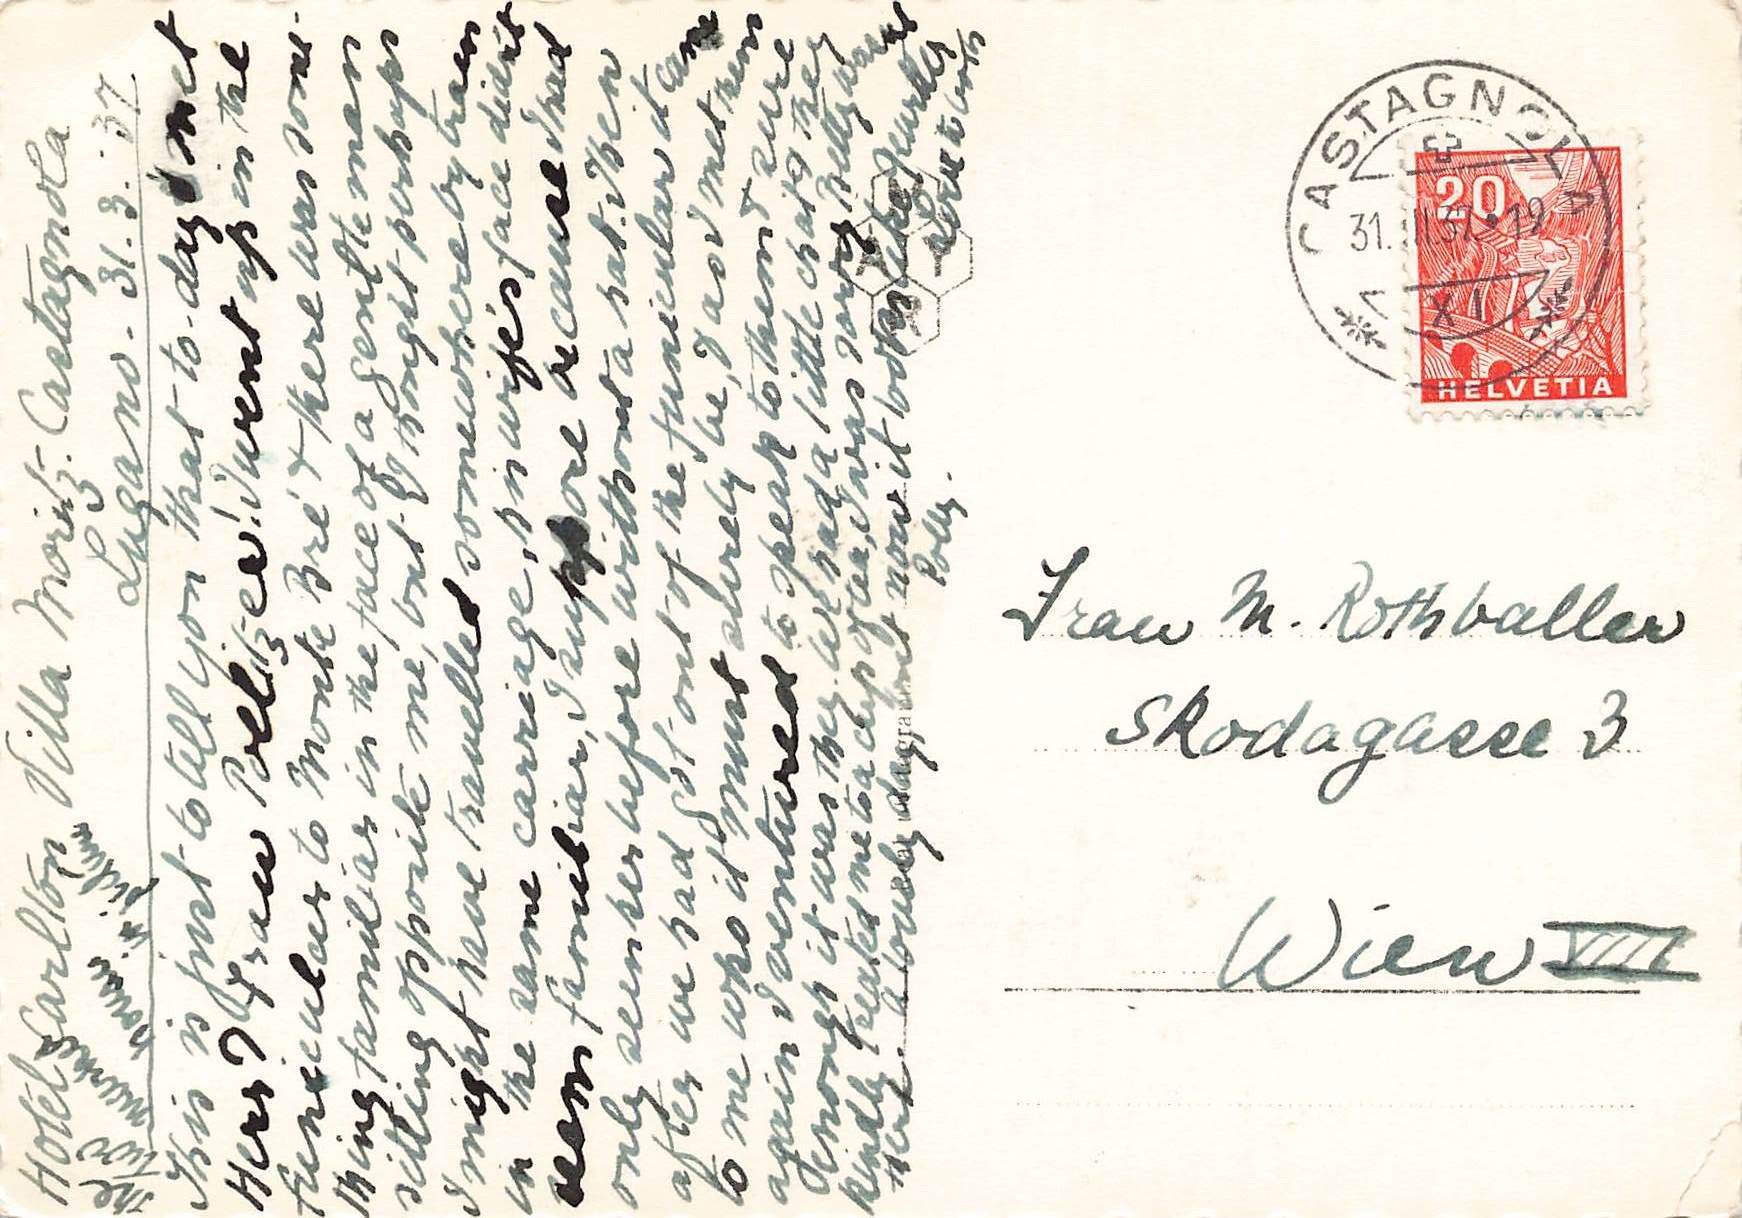 Hotel Carlton Villa Moritz. Castagnola
Lugano. 31. 3. 37.
The
This is just to tell you that to-day I met
Herr & Frau Pollitzer! I went up in the
funicular to Monte Brè & there was some-
thing familiar in the face of a gentleman
sitting opposite me, but I thought perhaps
I might have travelled somewhere by train
in the same carriage, his wife's face didn't
seem familiar, I suppose because I had
only seen her before without a hat. Then
after we had got out of the funicular it came
to me who it must surely be, & as I met them
again I ventured to speak to them & sure
enough it was they. We had a little chat & they
kindly treated me to a cup of tea, I was sorry Betty was not
there. A lovely day but now it looks like thunder
Love to both
Polly.
CASTAGNOLA
31. III. 37. 19
XI
20
HELVETIA
Frau M. Rothballer
Skodagasse 3
Wien VIII